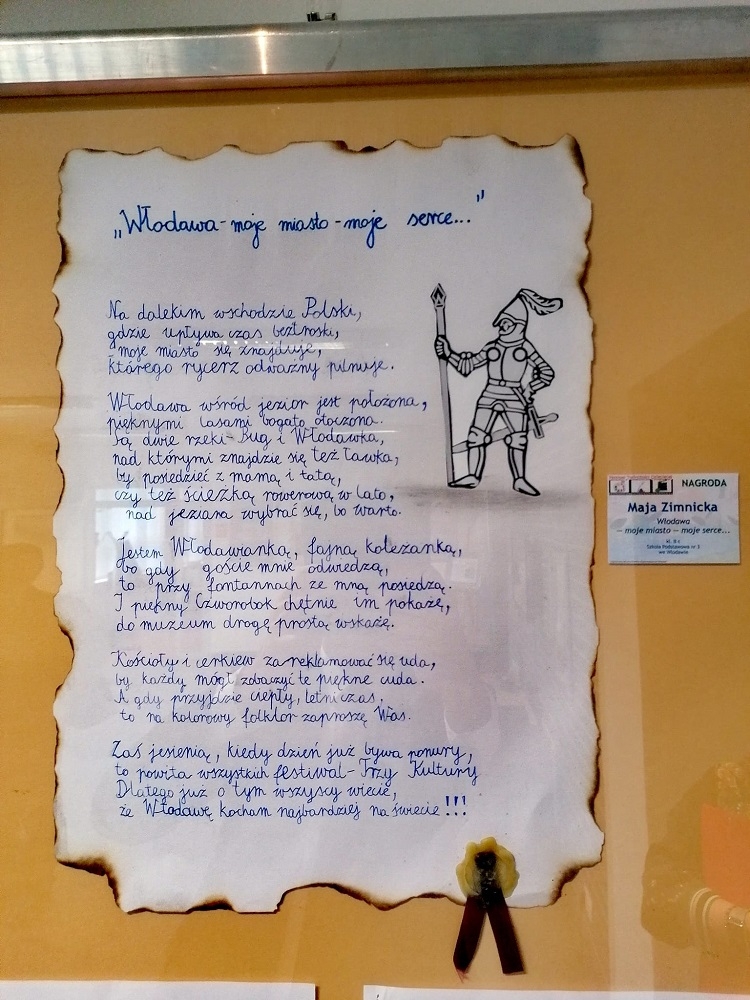 „Włodawa - moje miasto - moje serce..."
Na dalekim wschodzie Polski,
gdzie upływa czas beztroski,
moje miasto się znajduje,
którego rycerz odważny pilnuje.
Włodawa wśród jezior jest położona,
pięknymi lasami bogato otoczona.
Są dwie rzeki - Bug i Włodawka,
nad którymi znajdzie się też ławka,
by posiedzieć z mamą i tatą,
czy też ścieżką rowerową w lato,
nad jeziora wybrać się, bo warto.
Jestem Włodawianką, fajną koleżanką,
bo gdy goście mnie odwiedzą,
to przy fontannach ze mną posiedzą.
I piękny Czworobok chętnie im pokażę,
do muzeum drogę prostą wskażę.
Kościoły i cerkiew zareklamować się uda,
by każdy mógł zobaczyć te piękne cuda.
A gdy przyjdzie ciepły, letni czas,
to na kolorowy folklor zaproszę Was.
Zaś jesienią, kiedy dzień już bywa ponury,
to powita wszystkich festiwal - Trzy Kultury
Dlatego już o tym wszyscy wiecie,
że Włodawę kocham najbardziej na świecie!!!
NAGRODA
Maja Zimnicka
Włodawa
– moje miasto – moje serce...
Szkoła Podstawowa nr 3
we Włodawie